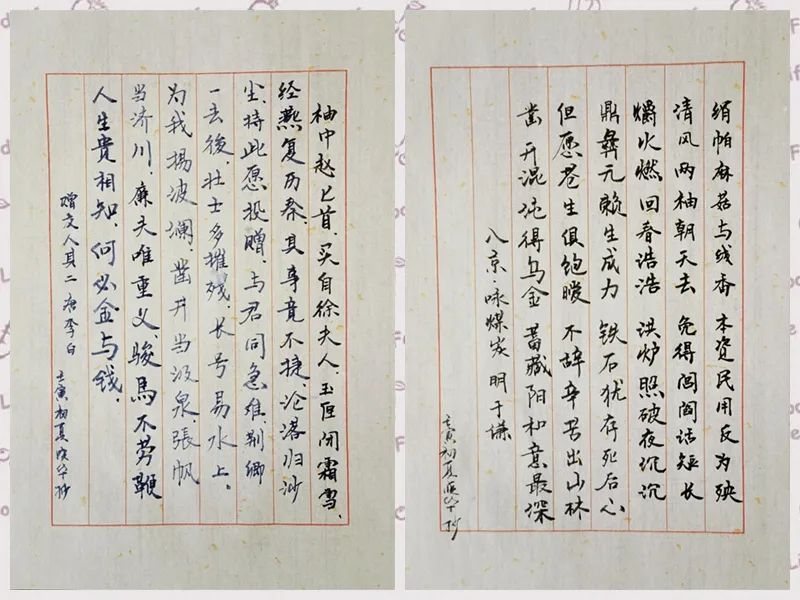 袖中赵匕首，买自徐夫人，玉匣闭霜雪，
经燕复历秦，其事竟不捷，沦落归沙
尘，持此愿投赠，与君同急难，荆卿
一去後，壮士多摧残，长号易水上。
为我扬波澜，凿井当汲泉，張帆
当济川，廉夫唯重义，骏馬不劳鞭
人生貴相知，何必金与钱。
赠友人其二 唐李白
壬寅初夏 华抄
绢帕麻菇与线香 本资民用反为殃
清风两袖朝天去 免得闾阎话短长
爝火燃回春浩浩 洪炉照破夜沉沉
鼎彝元赖生成力 铁石犹存死后心
但愿苍生俱饱暖 不辞辛苦出山林
凿开混沌得乌金 蓄藏阳和意最深
入京·咏煤炭 明于谦
壬寅初夏 华抄